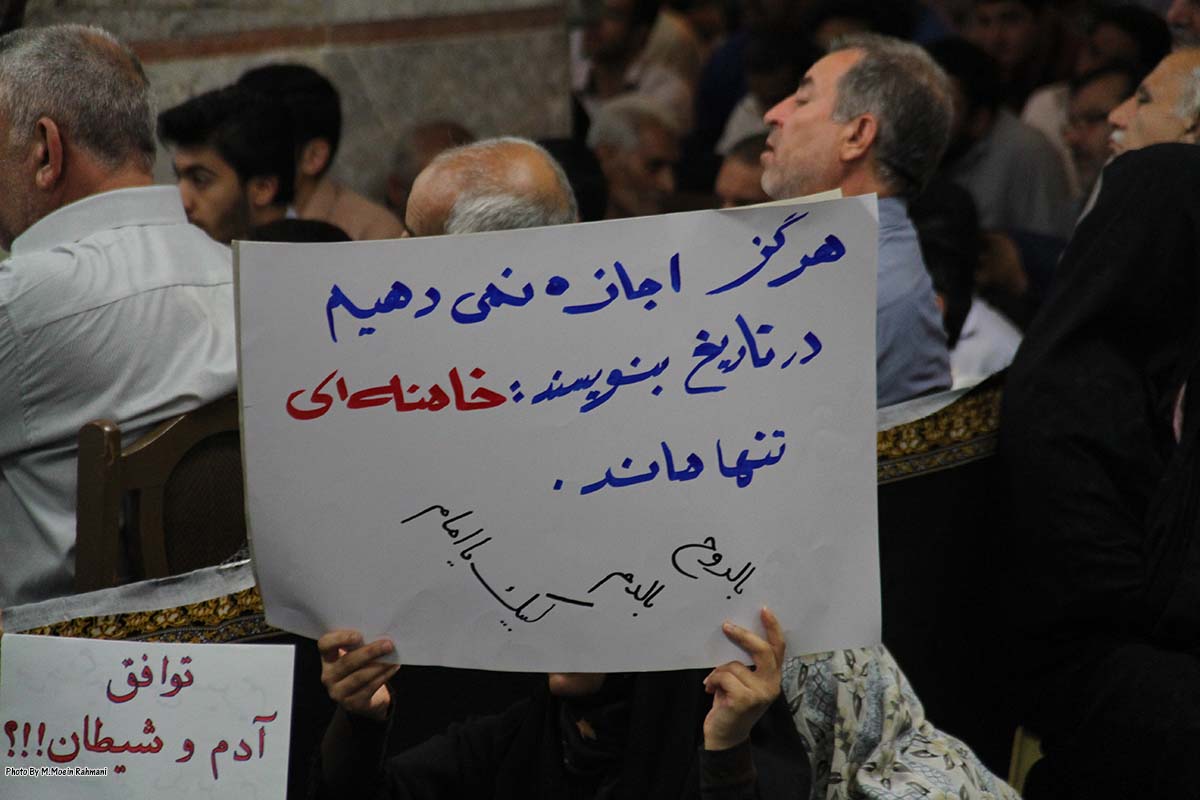 هرگز اجازه نمی دهیم
در تاریخ بنویسند: خامنه ای
تنها ماند.
بالروح بالدم لبیک یا امام
توافق
آدم و شیطان!!!؟
Photo By M.Moein Rahmani